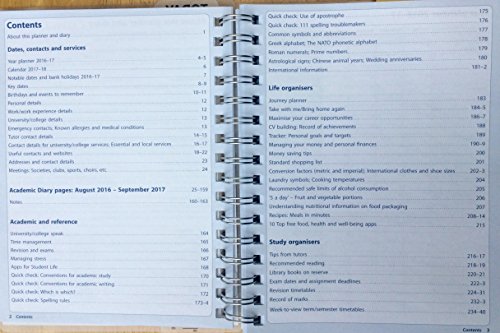 Contents
About this planner and diary 1
Dates, contacts and services
Year planner 2016–17 4–5
Calendar 2017–18 6
Notable dates and bank holidays 2016–17 7
Key dates 8–9
Birthdays and events to remember 10–11
Personal details 12
Work/work experience details 12
University/college details 13
Emergency contacts; Known allergies and medical conditions 13
Tutor contact details 14–15
Contact details for university/college services; Essential and local services 16–17
Useful contacts and websites 18–22
Addresses and contact details 23
Meetings: Societies, clubs, sports, choirs, etc. 24
Academic Diary pages: August 2016 – September 2017 25–159
Notes 160–163
Academic and reference
University/college speak 164
Time management 165
Revision and exams 166
Managing stress 167
Apps for Student Life 168
Quick check: Conventions for academic study 170
Quick check: Conventions for academic writing 171
Quick check: Which is which? 172
Quick check: Spelling rules 173–4
2 Contents
Quick check: Use of apostrophe 175
Quick check: 111 spelling troublemakers 176
Common symbols and abbreviations 177
Greek alphabet; The NATO phonetic alphabet 178
Roman numerals; Prime numbers 179
Astrological signs; Chinese animal years; Wedding anniversaries 180
International information 181–2
Life organisers
Journey planner 183
Take with me/Bring home again 184–5
Maximise your career opportunities 186–7
CV building: Record of achievements 188
Tracker: Personal goals and targets 189
Managing your money and personal finances 190–9
Money saving tips 200
Standard shopping list 201
Conversion factors (metric and imperial); International clothes and shoe sizes 202–3
Laundry symbols; Cooking temperatures 204
Recommended safe limits of alcohol consumption 205
'5 a day' – Fruit and vegetable portions 206
Understanding nutritional information on food packaging 207
Recipes: Meals in minutes 208–14
10 Top free food, health and well-being apps 215
Study organisers
Tips from tutors 216–17
Recommended reading 218–19
Library books on reserve 220–21
Exam dates and assignment deadlines 222–3
Revision timetables 224–31
Record of marks 232–3
Week-to-view term/semester timetables 234–40
Contents 3